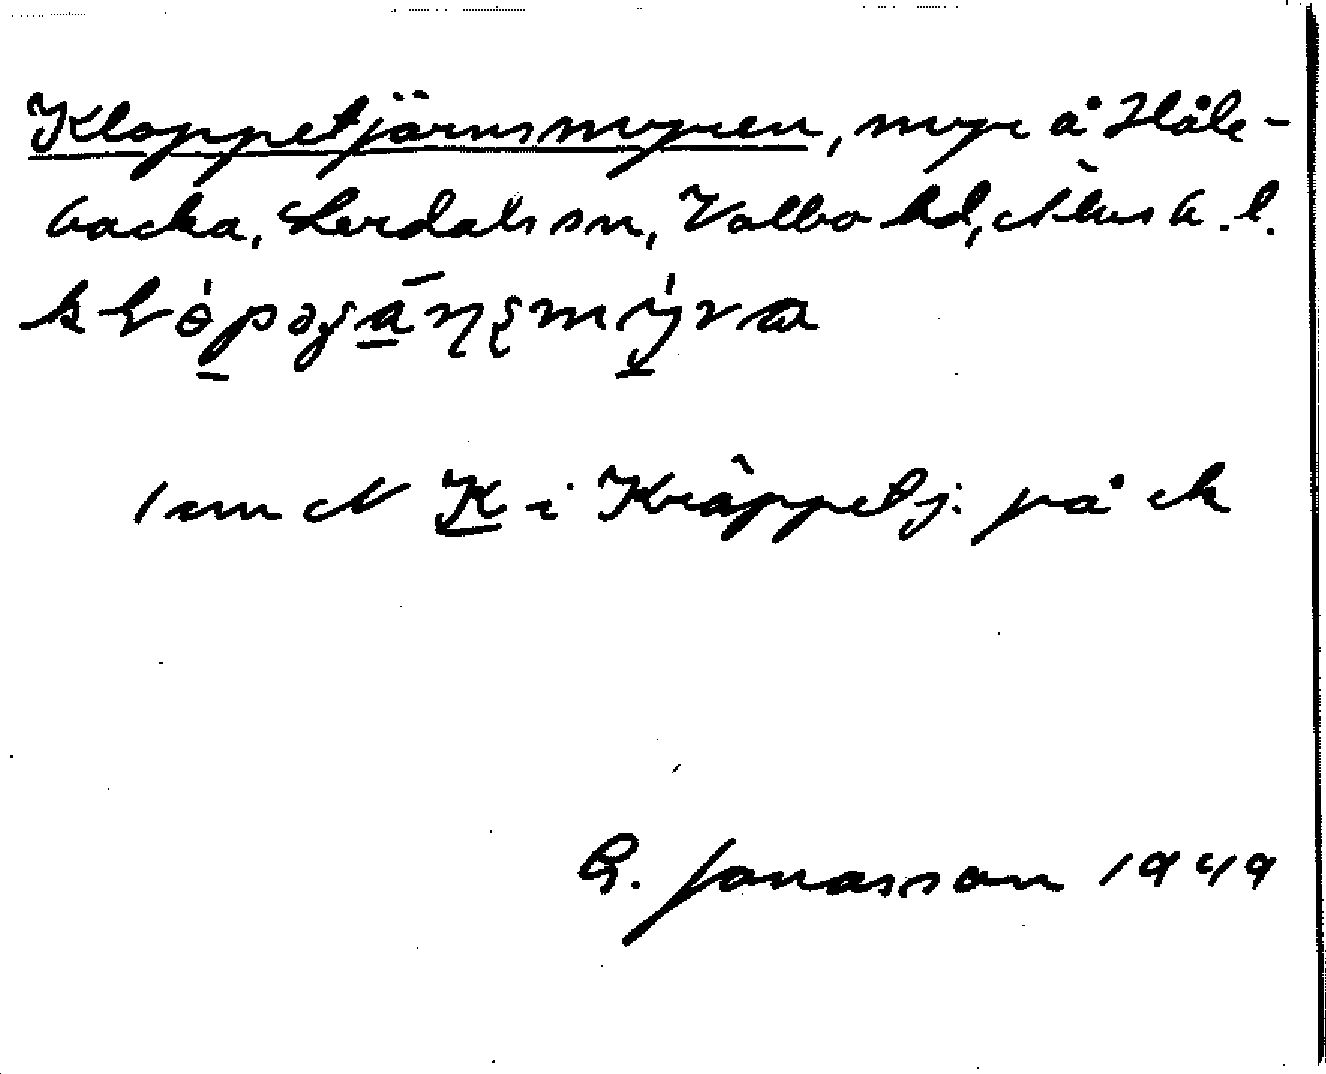 Kloppetjärnsmyren, myr å Håle-
backa, Lerdals sn, Valbo hd, Älvsb. l.
1 mm N K i Kräppetj. på ek
G. Jonasson 1949